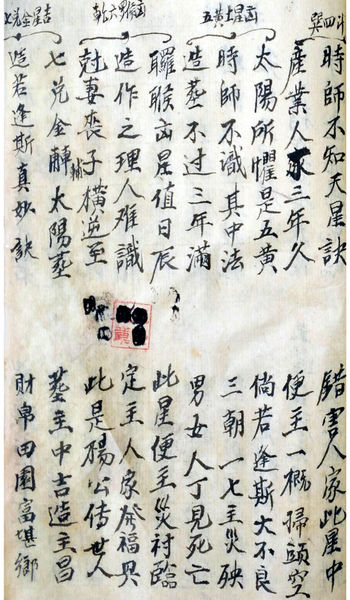 五黄土星凶
時師不知天星訣　錯害人家此星中
產業人家三年久　便主一概掃頭空
太陽所懼是五黄　倘若逢斯大不良
時師不識其中法　三朝一七主災殃
造葬不过三年滿　男女人丁見死亡
羅睺凶星值日辰　此星便主災討臨
造作之理人难識　定主人家發福興
尅妻喪子橫逆至　此是楊公傳世人
七兑金輔太陽葬　葬主中吉造主昌
造若逢斯真妙訣　財帛田園富堪鄉